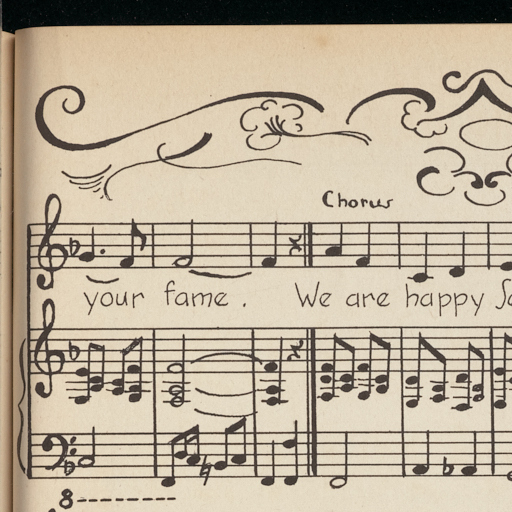 Chorus
your fame. We are happy
8